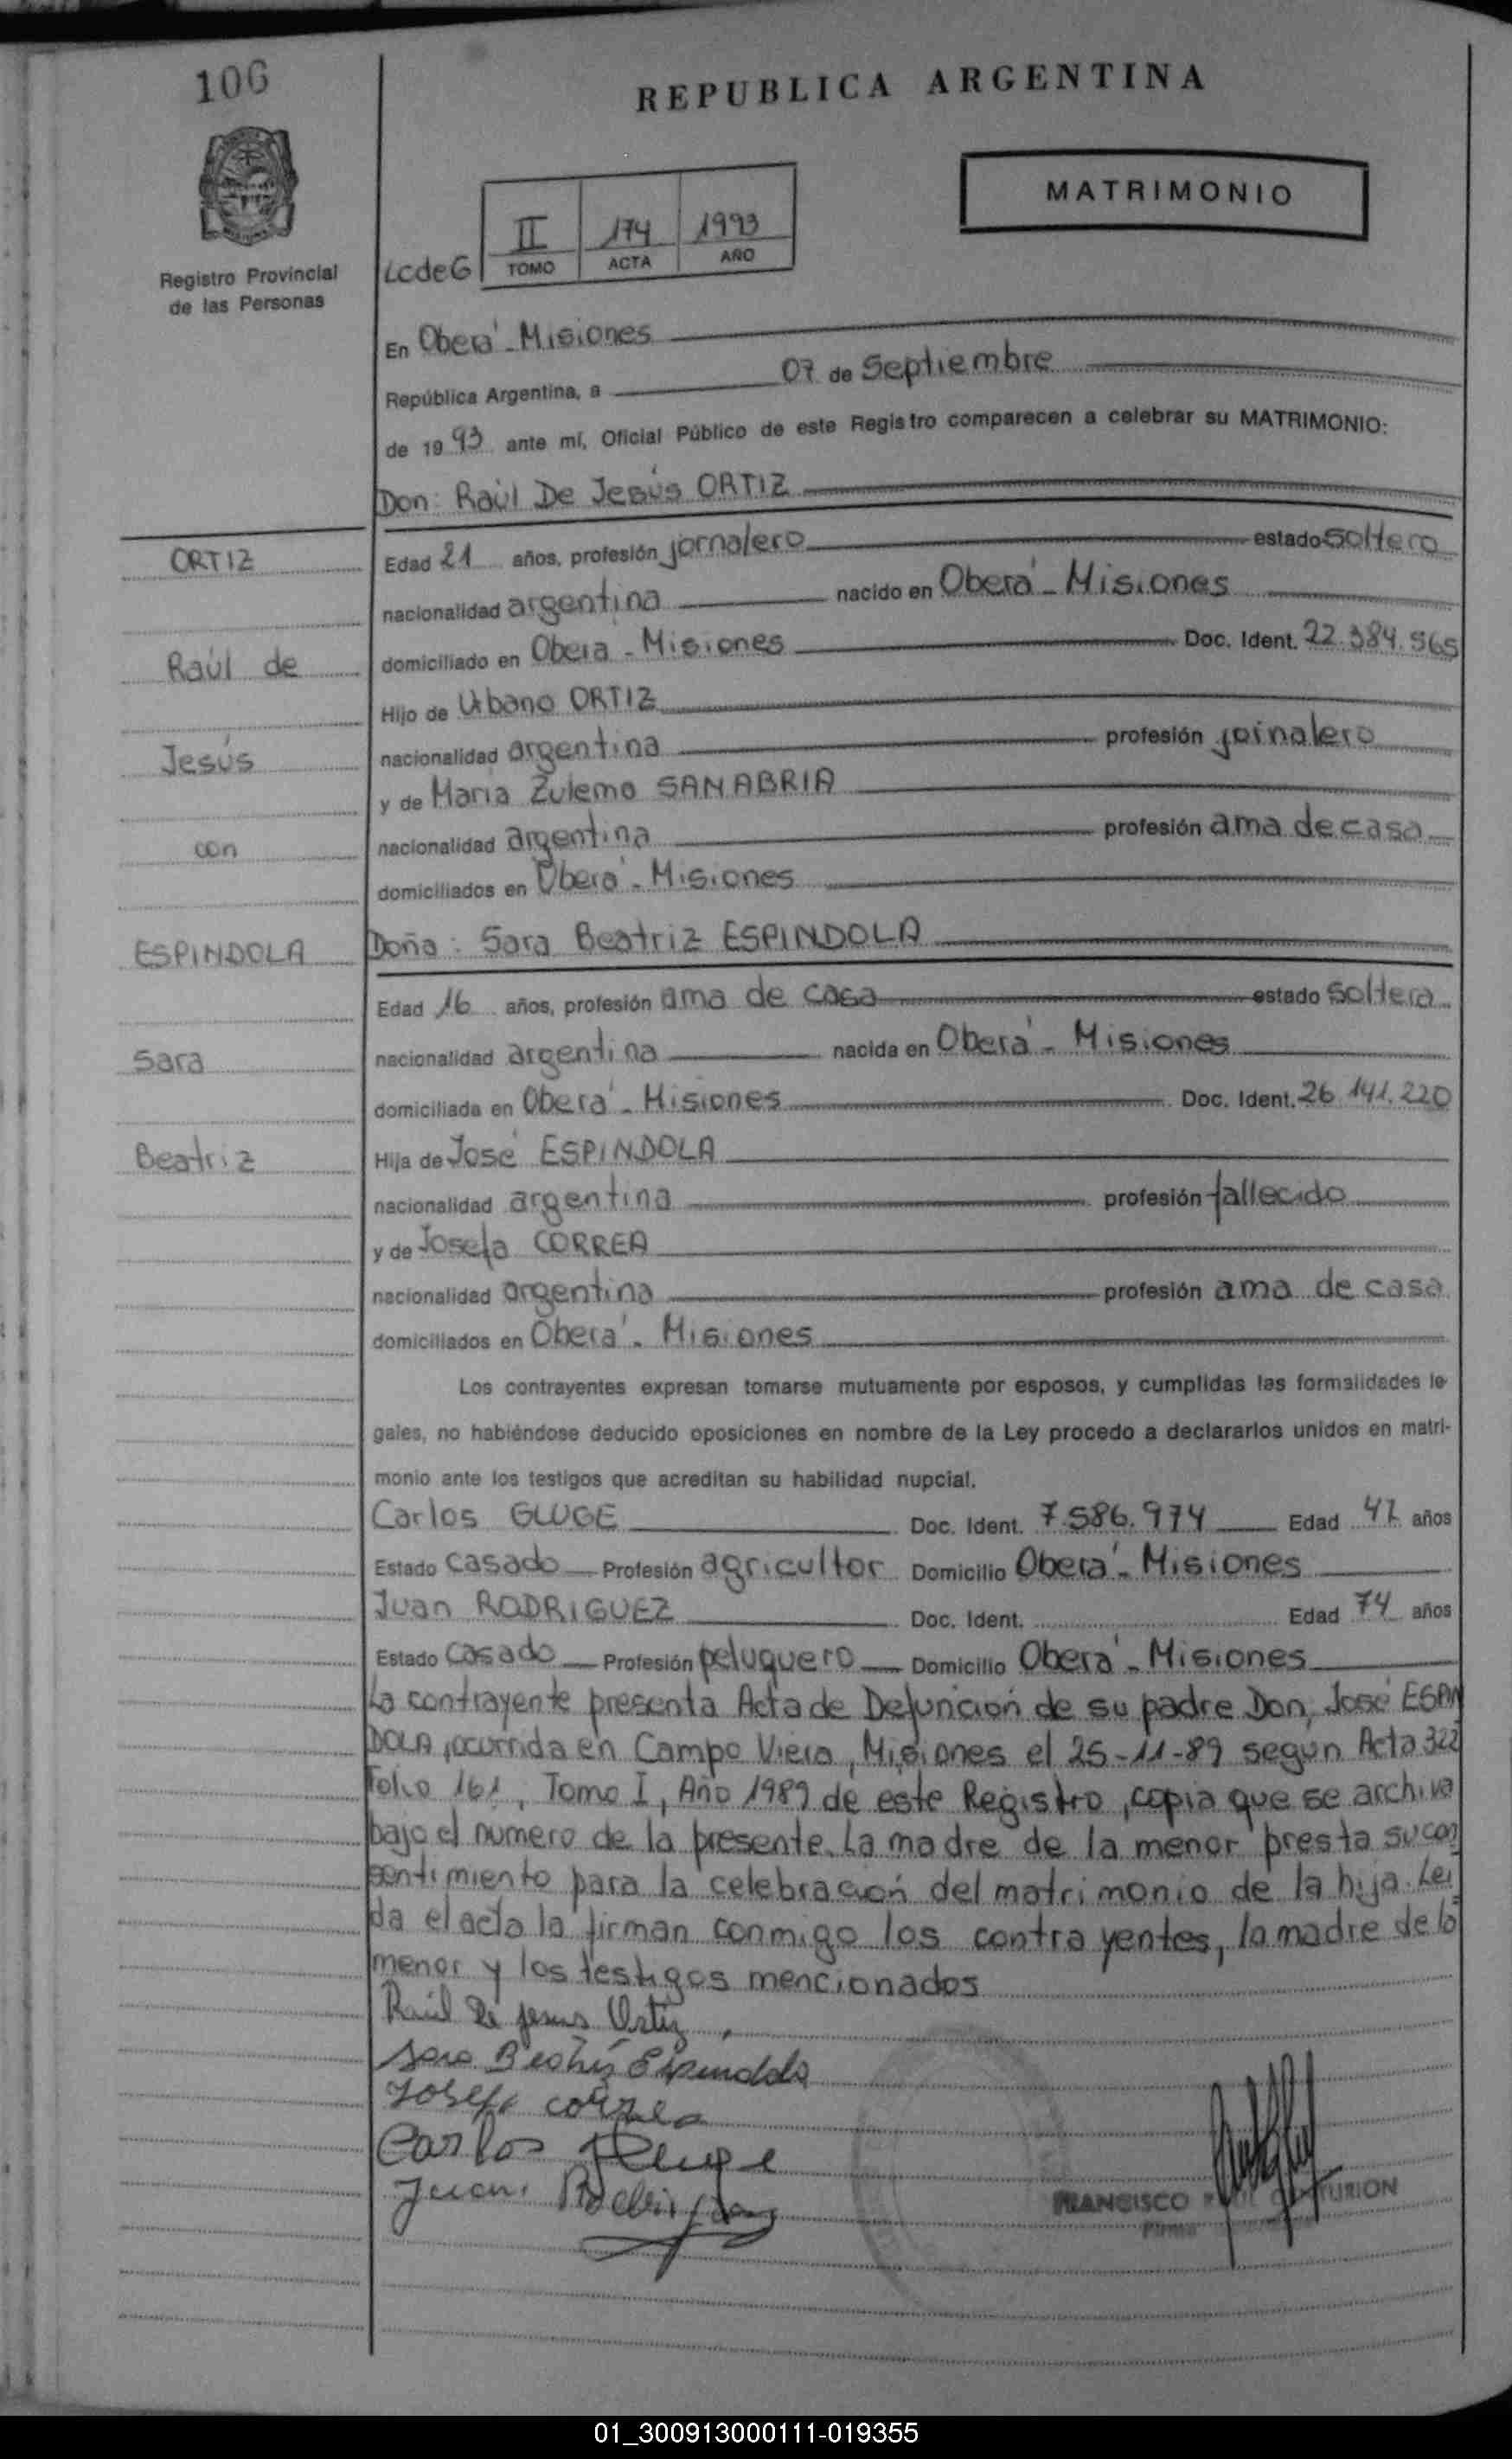 106
REPUBLICA ARGENTINA
MATRIMONIO
Registro Provincial
de las Personas
LcdeG
II 174 1993
TOMO ACTA AÑO
En Oberá - Misiones
República Argentina, a 07 de Septiembre
de 1993 ante mí, Oficial Público de este Registro comparecen a celebrar su MATRIMONIO:
Don: Raúl De Jesús ORTIZ
ORTIZ
Edad 21 años, profesión jornalero estado soltero
nacionalidad argentina nacido en Oberá - Misiones
Raúl de
domiciliado en Obera - Misiones Doc. Ident. 22.384.565
Hijo de Urbano ORTIZ
Jesús
nacionalidad argentina profesión jornalero
y de Maria Zulema SANABRIA
con
nacionalidad argentina profesión ama de casa
domiciliados en Oberá - Misiones
ESPINDOLA
Doña: Sara Beatriz ESPINDOLA
Edad 16 años, profesión ama de casa estado soltera
Sara
nacionalidad argentina nacida en Oberá - Misiones
domiciliada en Oberá - Misiones Doc. Ident. 26.141.220
Beatriz
Hija de José ESPINDOLA
nacionalidad argentina profesión fallecido
y de Josefa CORREA
nacionalidad argentina profesión ama de casa
domiciliados en Oberá - Misiones
Los contrayentes expresan tomarse mutuamente por esposos, y cumplidas las formalidades le-
gales, no habiéndose deducido oposiciones en nombre de la Ley procedo a declararlos unidos en matri-
monio ante los testigos que acreditan su habilidad nupcial.
Carlos GLUGE Doc. Ident. 7.586.974 Edad años
Estado casado Profesión agricultor Domicilio Oberá - Misiones
Juan RODRIGUEZ Doc. Ident. Edad 74 años
Estado casado Profesión peluquero Domicilio Oberá - Misiones
La contrayente presenta Acta de Defunción de su padre Don, José ESPIN
DOLA, ocurrida en Campo Viera, Misiones el 25-11-89 segun Acta 322
Folio 161, Tomo I, Año 1989 de este Registro, copia que se archiva
bajo el numero de la presente. La madre de la menor presta su con
sentimiento para la celebración del matrimonio de la hija. Lei
da el acta la firman conmigo los contrayentes, la madre de la
menor y los testigos mencionados
Raúl De Jesus Ortiz
Sara Beatriz Espindola
Josefa correa
Carlos Gluge
Juan Rodriguez
FRANCISCO CENTURION
01_300913000111-019355